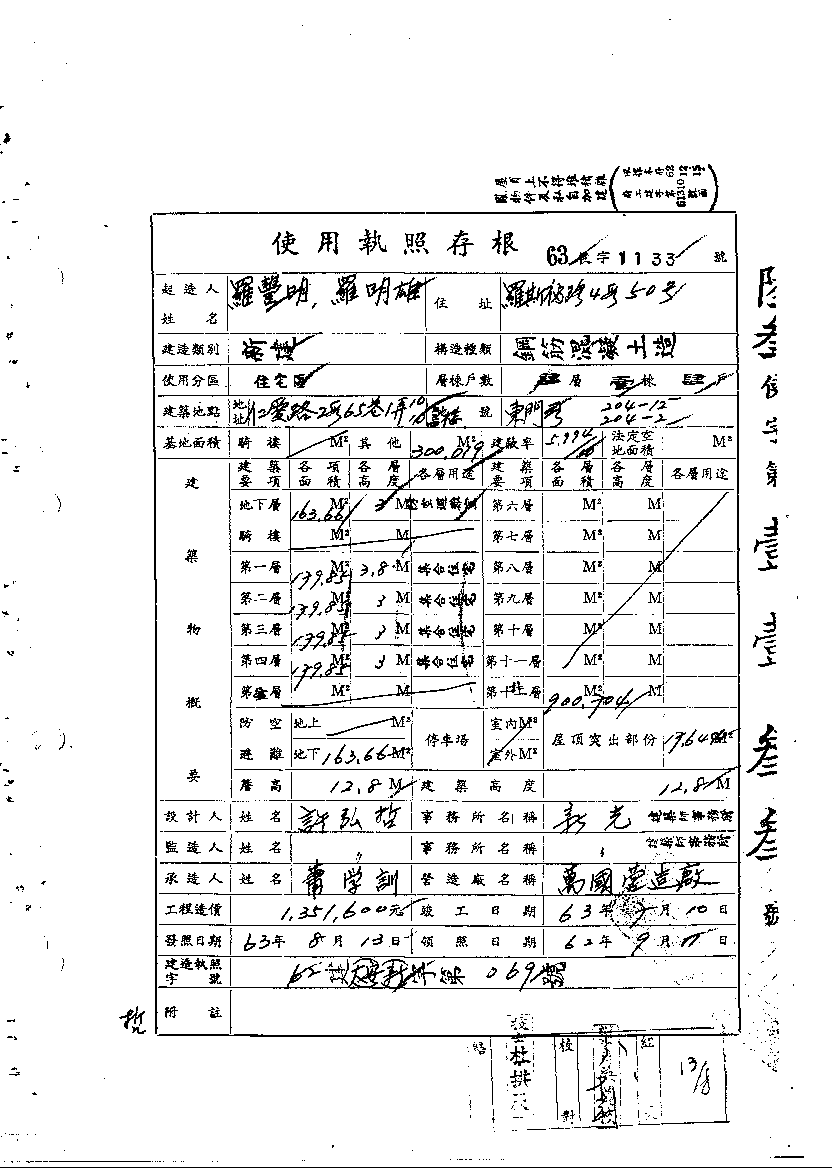 屋頂上不得堆積雜
物件及私自加建
使用執照存根 63 使字1133 號
起造人姓名 羅豐明、羅明雄 住址 羅斯福路4段50号
建造類別 新建 構造種類 鋼筋混凝土造
使用分區 住宅區 層棟戶數 肆層 壹棟 戶
建築地點 地址 仁愛路2段65巷1弄 號 東門段 204-12 204-2
基地面積 騎樓 M² 其他 300.019 M² 建蔽率 法定空地面積 M²
建築物概要 建築要項 各項面積 各層高度 各層用途 建築要項 各項面積 各層高度 各層用途
地下層 163.66 M² 3 M 第六層 M² M
騎樓 M² M 第七層 M² M
第一層 139.85 M² 3.8 M 集合住宅 第八層 M² M
第二層 139.85 M² 3 M 集合住宅 第九層 M² M
第三層 139.85 M² 3 M 集合住宅 第十層 M² M
第四層 139.85 M² 3 M 集合住宅 第十一層 M² M
層 M² M 900.704 M
防空避難 地上 M² 停車場 室內 M² 屋頂突出部份 M²
地下 163.66 M² 室外 M²
簷高 12.8 M 建築高度 12.8 M
設計人 姓名 許弘哲 事務所名稱 新光 建築師事務所
監造人 姓名 〃 事務所名稱 〃 建築師事務所
承造人 姓名 蕭學訓 營造廠名稱 萬國營造廠
工程造價 1,351,600元 竣工日期 63年 月10日
發照日期 63年8月13日 領照日期 62年9月11日
建造執照字號 62 第069號
附註
校對
13/8
使字第壹壹叁叁號